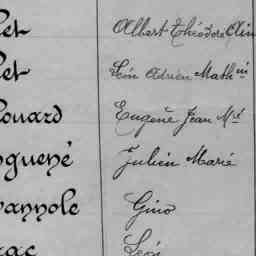 let Albert Théodore Aim
let Léon Adrien Math in
ouard Eugène Jean Mie
guené Julien Marie
annole Gino
rac Léon